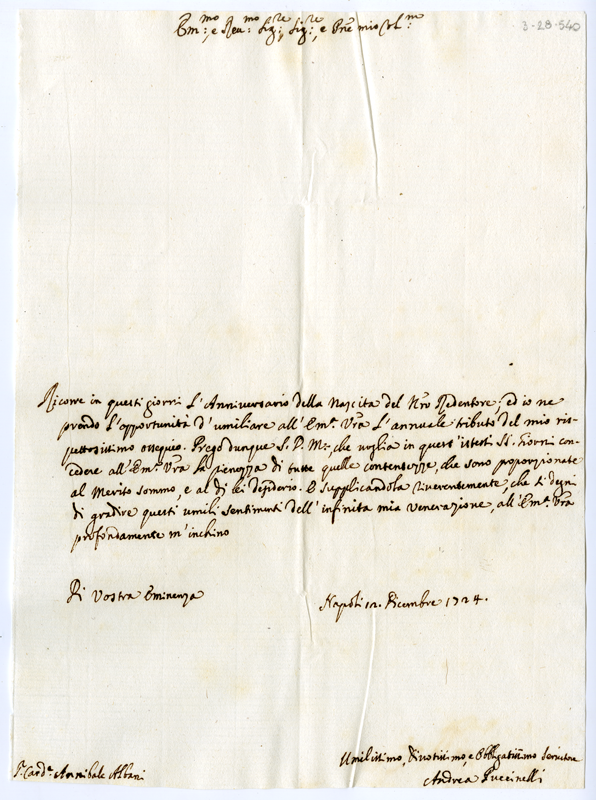 3-28-540
Em:mo, e Reu:mo Sig:re, Sig:re, e Prñe mio Col:mo
Ricorre in questi giorni l'Anniversario della Nascita del Nrõ Redentore; ed io ne
prendo l'opportunità d'umiliare all'Em.ª Vrã l'annuale tributo del mio ris-
pettosissimo ossequio. Prego dunque S. D. M:, che voglia in quest'istessi SS. Giorni con-
cedere all'Em.ª Vrã la pienezza di tutte quelle contentezze, che sono proporzionate
al Merito sommo, e al di lei desiderio. E supplicandola riverentemente, che si degni
di gradire questi umili sentimenti dell'infinita mia venerazione, all'Em.ª Vrã
profondamente m'inchino
Di Vostra Eminenza
Napoli 12. Dicembre 1724.
Umilissimo, Divotissimo, e Obbligatissimo Servitore
Andrea Puccinelli
Card.e Annibale Albani